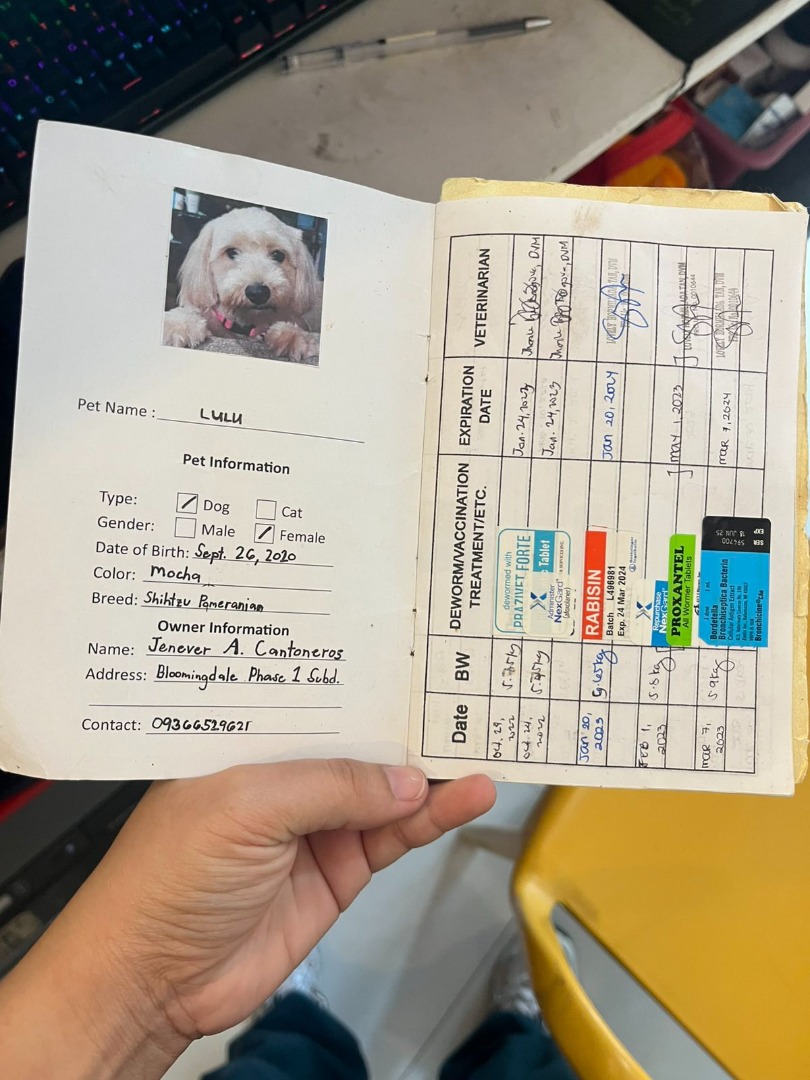 Pet Name : LULU
Pet Information
Type: Dog Cat
Gender: Male Female
Date of Birth: Sept. 26, 2020
Color: Mocha
Breed: Shihtzu Pomeranian
Owner Information
Name: Jenever A. Cantoneros
Address: Bloomingdale Phase 1 Subd.
Contact: 09366529621
Date BW DEWORM/VACCINATION TREATMENT/ETC. EXPIRATION DATE VETERINARIAN
2022 5.75kg dewormed with PRAZIVET FORTE Jan. 24, 2023 DVM
2022 NexGard (afoxolaner) Tablet Jan. 24, 2023 DVM
Jan 20, 2023 RABISIN Jan 20, 2024
Batch L496981
Exp. 24 Mar 2024
FEB 1, 2023 NexGard
PROXANTEL May 1, 2023
All Wormer Tablets
Mar 7, 2023 5.9kg Mar 7, 2024
Bordetella
Bronchiseptica Bacterin
Cellular Antigen Extract
Bronchicine CAe
SER 594700
EXP 18 JUN 25